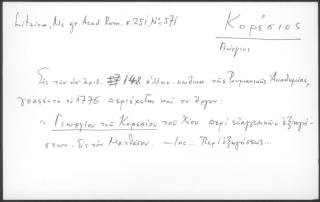 Litzica, Ms gr Acad. Rom. σ. 251, Nº 571
Κορέσιος
Γεώργιος
Εἰς τὸν ὑπ' ἀριθ. 148 ἄλλον κώδικα τῆς Ρουμανικῆς Ἀκαδημίας,
γραφέντα τὸ 1776 περιέχεται καὶ τὸ ἔργον:
" Γεωργίου τοῦ Κορεσίου τοῦ Χίου περὶ εὐαγγελικῶν ἐξηγή-
σεων. Εἰς τὸν Ματθαῖον. — Inc.: Περὶ ἐξηγήσεως...